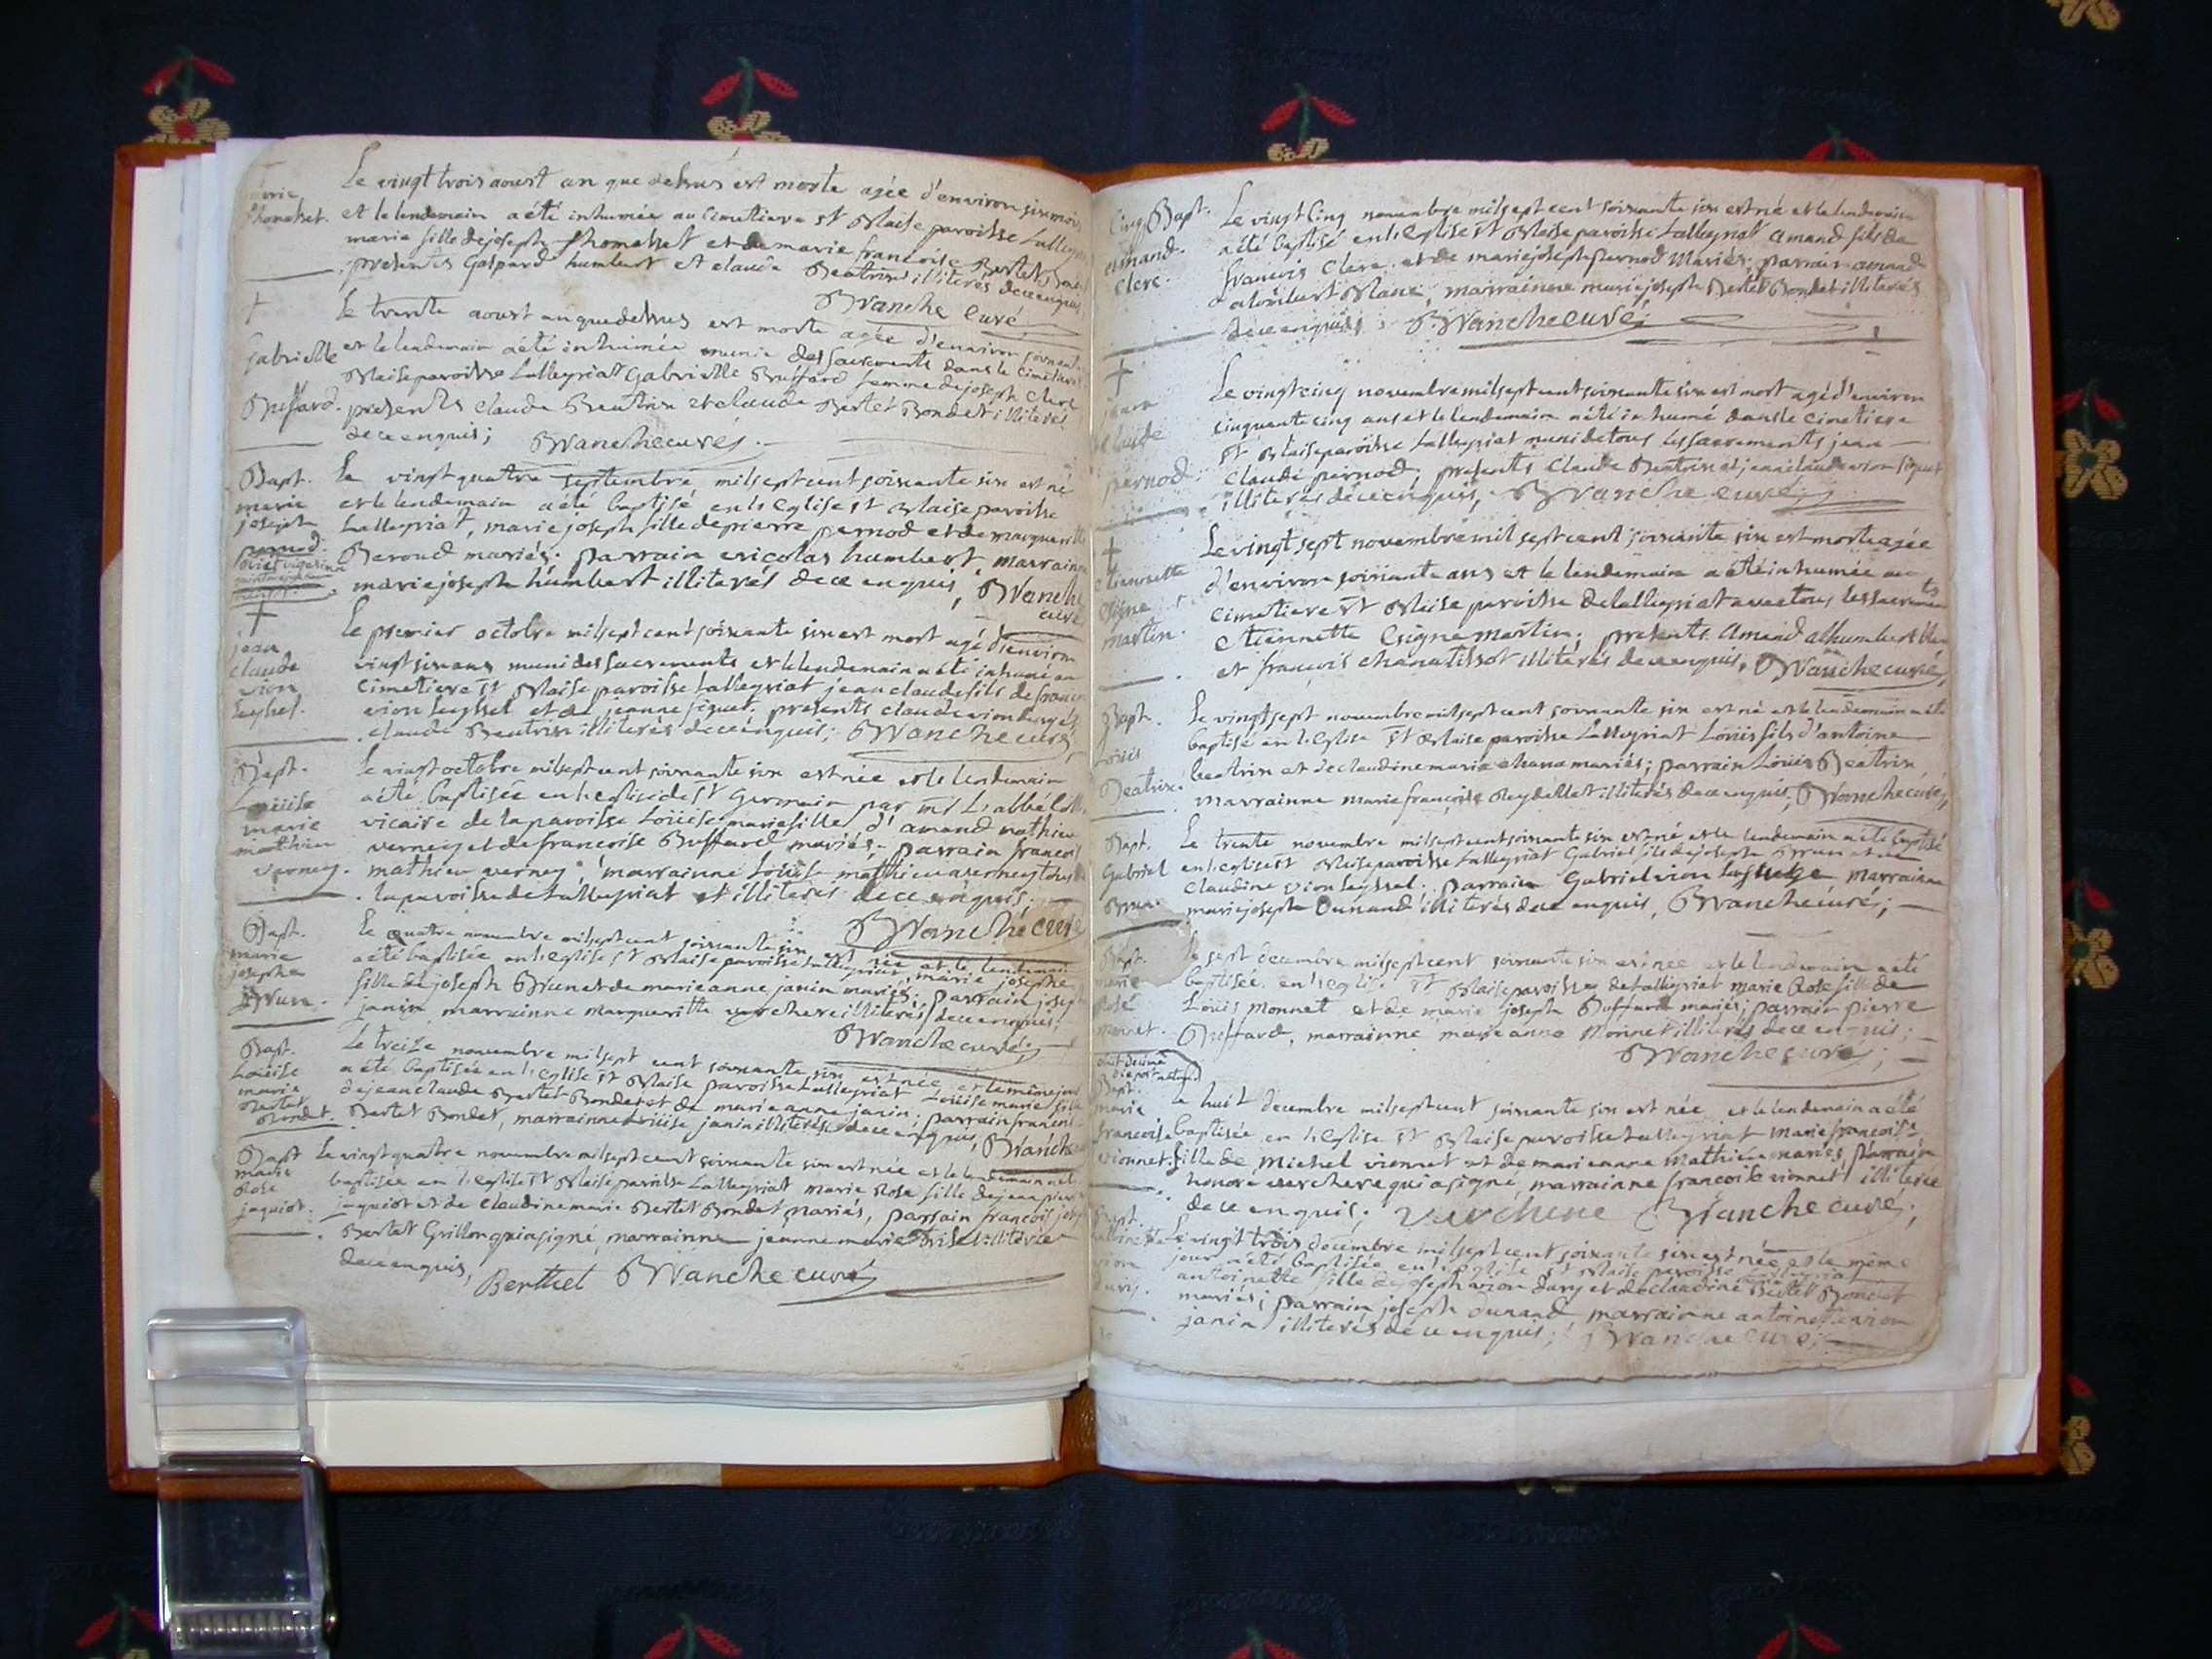 marie
Thomasset.
Le vingt trois aoust an que dessus est morte agée d'environ six mois
et le lendemain a été inhumée au cimetiere st Blaise paroisse Lalleyriat
marie fille de joseph thomasset et de marie francoise Bertet
presents Gaspard humbert et claude Beatrix illiterés de ce enquis
Blanche Curé
Gabrielle
Buffard.
Le trente aoust an que dessus est morte agée d'environ soixante
et le lendemain a été inhumée munie des sacrements dans le cimetiere
Blaise paroisse Lalleyriat Gabrielle Buffard femme de joseph Clerc
presents claude Beatrix et claude Bertet Bondet illiterés
de ce enquis; Blanche curé.
Bapt.
marie
joseph
pernod.
Le vingt quatre septembre mil sept cent soixante six est né
et le lendemain a été baptisé en l'eglise st Blaise paroisse
Lalleyriat, marie joseph fille de pierre pernod et de margueritte
Beroud mariés. parrain nicolas humbert, marraine
marie joseph humbert illiterés de ce enquis, Blanche
curé
jean
claude
vion
Leyssel.
Le premier octobre mil sept cent soixante six est mort agé d'environ
vingt six ans muni des sacrements et le lendemain a été inhumé au
cimetiere st Blaise paroisse Lalleyriat jean claude fils de francois
vion Leyssel et de jeanne siguet. presents claude vion
claude Beatrix illiterés de ce enquis; Blanche curé
Bapt.
Loüise
marie
mathieu
verney.
Le vingt octobre mil sept cent soixante six est née et le lendemain
a été baptisée en l'eglise de st Germain par mr L'abbé
vicaire de la paroisse Loüise marie fille d'amand mathieu
verney et de francoise Buffard mariés. parrain francois
mathieu verney, marrainne Loüise mathieu verney tous
la paroisse de Lalleyriat et illiterés de ce enquis;
Blanche curé
Bapt.
marie
josephe
Brun.
Le quatre novembre mil sept cent soixante six est née et le lendemain
a été baptisée en l'eglise st Blaise paroisse Lalleyriat, marie josephe
fille de joseph Brun et de marie anne janin mariés; parrain joseph
janin marrainne margueritte verchere illiterés de ce enquis;
Blanche curé;
Bapt.
Loüise
marie
Bertet
Bondet.
Le treize novembre mil sept cent soixante six est née et le même jour
a été baptisée en l'eglise st Blaise paroisse Lalleyriat Loüise marie fille
de jean claude Bertet Bondet et de marie anne janin; parrain francois
Bertet Bondet, marrainne Loüise janin illiterés de ce enquis, Blanche
Bapt
marie
Rose
jaquiot.
Le vingt quatre novembre mil sept cent soixante six est née et le lendemain a été
baptisée en l'eglise st Blaise paroisse Lalleyriat marie Rose fille de jean pierre
jaquiot et de claudine marie Bertet Bondet mariés, parrain francois joseph
Bertet Grillon qui a signé, marrainne jeanne marie illiterée
de ce enquis, Berthet Blanche curé
Bapt.
amand.
Clerc.
Le vingt cinq novembre mil sept cent soixante six est né et le lendemain
a été baptisé en l'eglise st Blaise paroisse Lalleyriat amand fils de
francois Clerc et de marie joseph pernod mariés; parrain amand
alombert Blanc, marrainne marie joseph Bertet Bondet illiterés
de ce enquis; Blanche curé;
jean
claude
pernod.
Le vingt cinq novembre mil sept cent soixante six est mort agé d'environ
cinquante cinq ans et le lendemain a été inhumé dans le cimetiere
st Blaise paroisse Lalleyriat muni de tous les sacrements jean
Claude pernod, presents Claude Beatrix et jean claude vion siguet
illiterés de ce enquis, Blanche curé;
etiennette
Cigne
martin.
Le vingt sept novembre mil sept cent soixante six est morte agée
d'environ soixante ans et le lendemain a été inhumée au
cimetiere st Blaise paroisse de Lalleyriat avec tous les sacrements
etiennette Cigne martin; presents Amand alhumbert blanc
et françois chanatissot illiterés de ce enquis, Blanche curé,
Bapt.
Loüis
Beatrix.
Le vingt sept novembre mil sept cent soixante six est né et le lendemain a été
baptisé en l'eglise st Blaise paroisse Lalleyriat Loüis fils d'antoine
beatrix et de claudine marie chana mariés; parrain Loüis Beatrix
marrainne marie françoise Reydellet illiterés de ce enquis, Blanche curé,
Bapt.
Gabriel
Brun.
Le trente novembre mil sept cent soixante six est né et le lendemain a été baptisé
en l'eglise st Blaise paroisse Lalleyriat Gabriel fils de joseph Brun et de
Claudine vion Leyssel; parrain Gabriel vion marrainne
marie joseph Dunand illiterés de ce enquis, Blanche curé;
Bapt.
marie
Rose
monnet.
Le sept decembre mil sept cent soixante six est née et le lendemain a été
baptisée en l'eglise st Blaise paroisse de Lalleyriat marie Rose fille de
Loüis monnet et de marie joseph Buffard mariés; parrain pierre
Buffard, marrainne marie anne Monnet illiterés de ce enquis;
Blanche curé;
Bapt.
marie
francoise
vionnet
Le huit decembre mil sept cent soixante six est née et le lendemain a été
baptisée en l'eglise st Blaise paroisse Lalleyriat marie francoise
fille de Michel vionnet et de marianne Mathieu mariés, parrain
honoré verchere qui a signé, marrainne francoise vionnet illiterée
de ce enquis; Verchere Blanche curé;
Bapt.
vion
dury.
Le vingt trois decembre mil sept cent soixante six est née et le même
jour a été baptisée en l'eglise st Blaise paroisse Lalleyriat
antoinette fille de joseph vion dury et de claudine Bertet Bondet
mariés; parrain joseph dunand, marrainne antoinette vion
janin illiterés de ce enquis; Blanche curé;